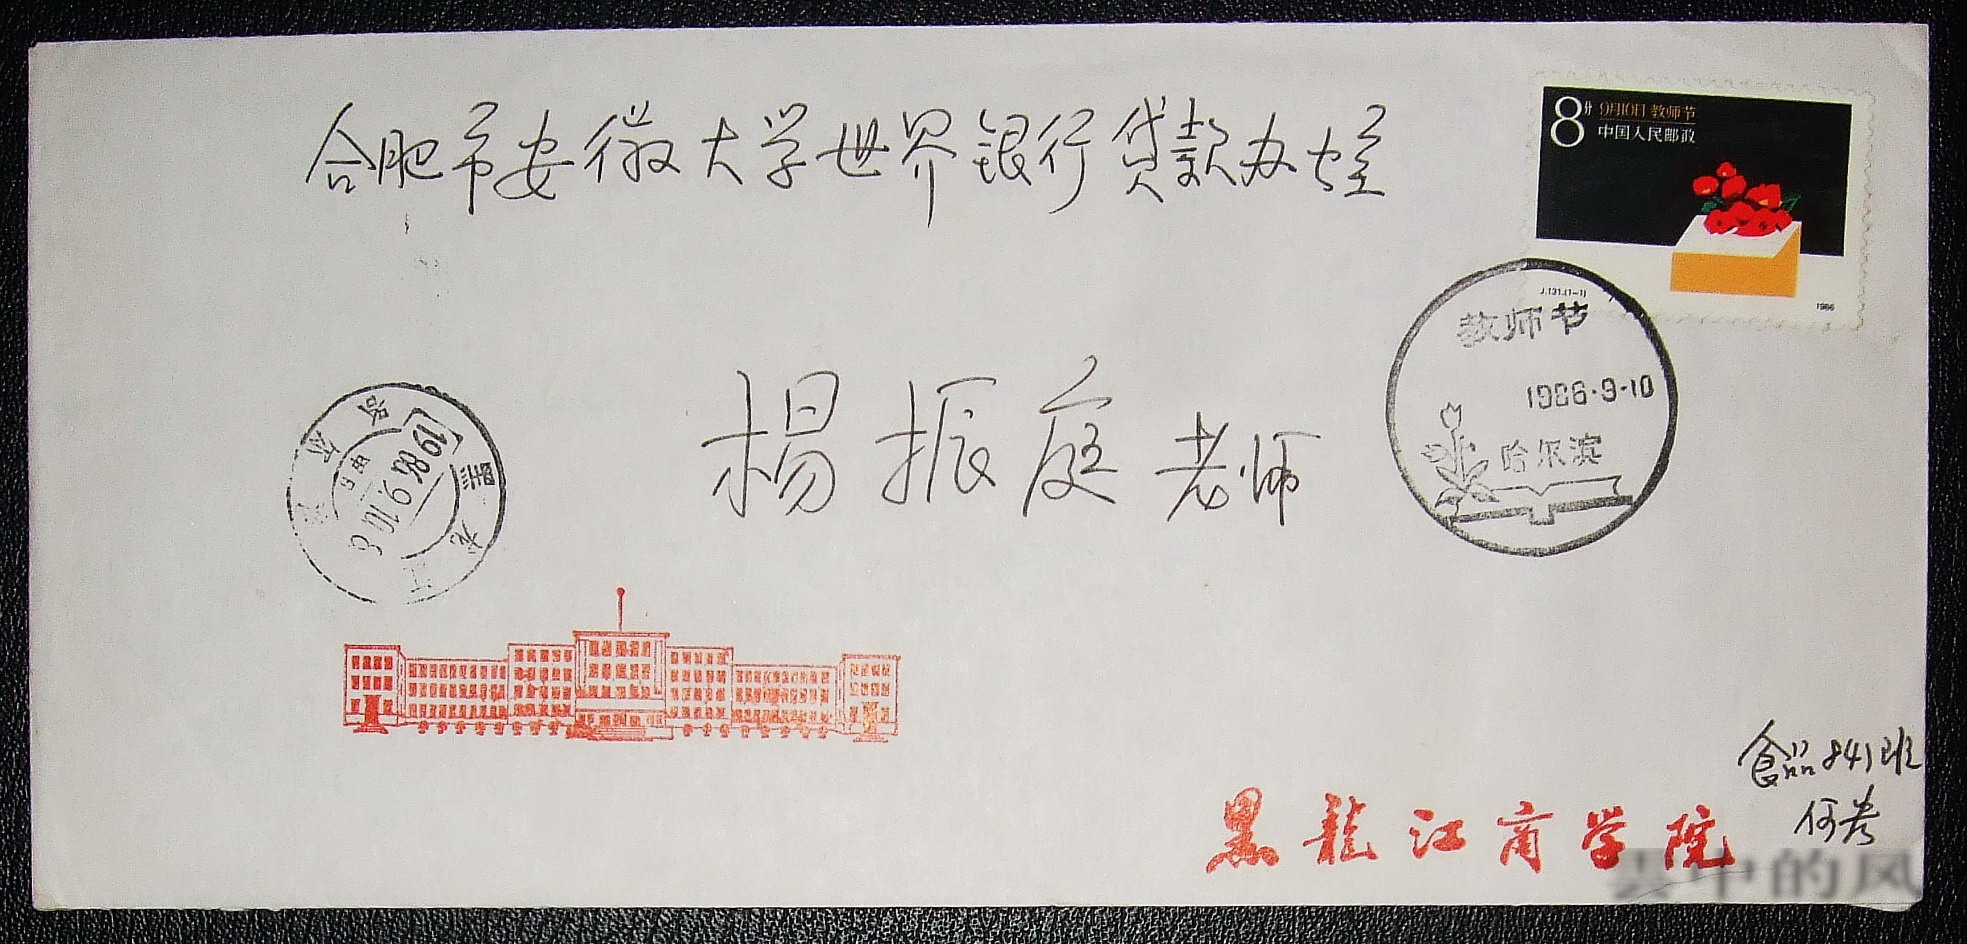 合肥市安徽大学世界银行贷款办公室
8分 9月10日 教师节
中国人民邮政
J.131.(1-1)
1986
教师节
1986·9·10
哈尔滨
杨振庭老师
黑龙江
哈尔
1986.9.10.
食品841班
黑龍江商学院
雲中的风